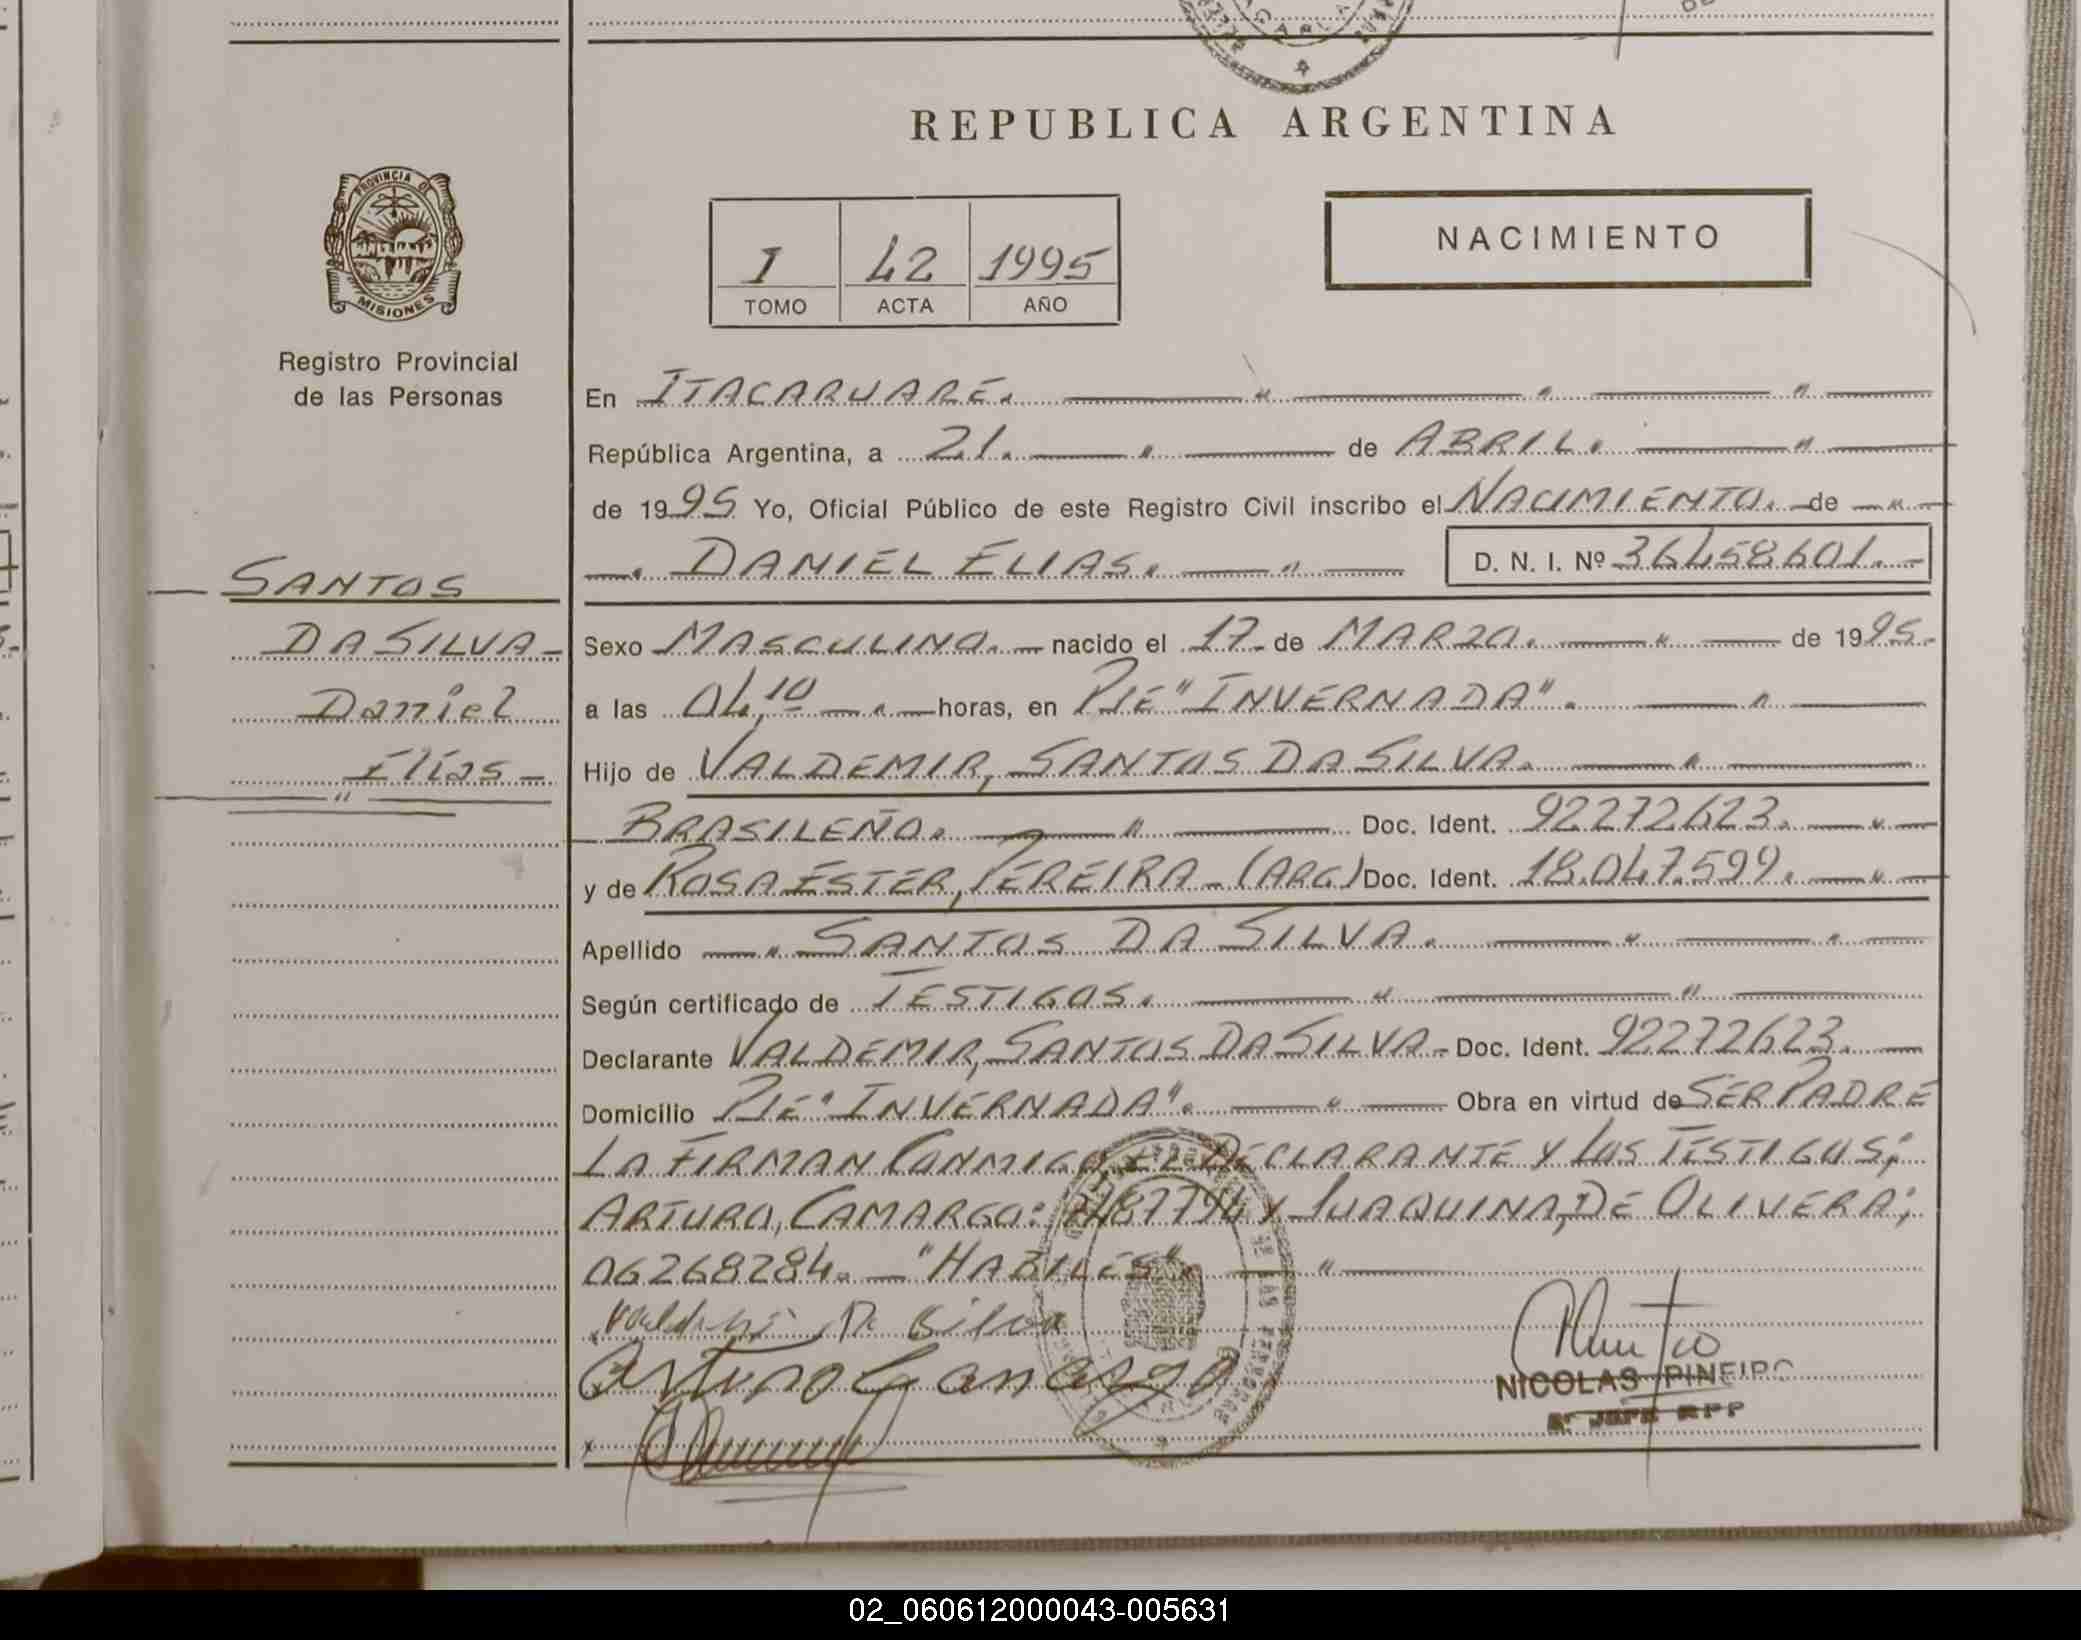 REPUBLICA ARGENTINA
PROVINCIA DE
MISIONES
Registro Provincial
de las Personas
1 42 1995
TOMO ACTA AÑO
NACIMIENTO
En ITACARUARE.
República Argentina, a 21. de ABRIL.
de 1995 Yo, Oficial Público de este Registro Civil inscribo el NACIMIENTO. de
DANIEL ELIAS. D. N. I. Nº 36458601.
SANTOS
DA SILVA
Daniel
Elías
Sexo MASCULINO. nacido el 17 de MARZO. de 1995.
a las 04,10 horas, en PJE "INVERNADA".
Hijo de VALDEMIR, SANTOS DA SILVA.
BRASILEÑO. Doc. Ident. 92272623.
y de ROSA ESTER, PEREIRA - (ARG) Doc. Ident. 18.047.599.
Apellido SANTOS DA SILVA.
Según certificado de TESTIGOS.
Declarante VALDEMIR, SANTOS DA SILVA - Doc. Ident. 92272623.
Domicilio PJE "INVERNADA". Obra en virtud de SER PADRE
LA FIRMAN CONMIGO, EL DECLARANTE Y LOS TESTIGOS;
ARTURO, CAMARGO: 7487794 Y JUAQUINA, DE OLIVERA;
06268284. "HABILES".
Silva
Arturo Camargo
NICOLAS PIÑEIRO
JEFE RPP
02_060612000043-005631